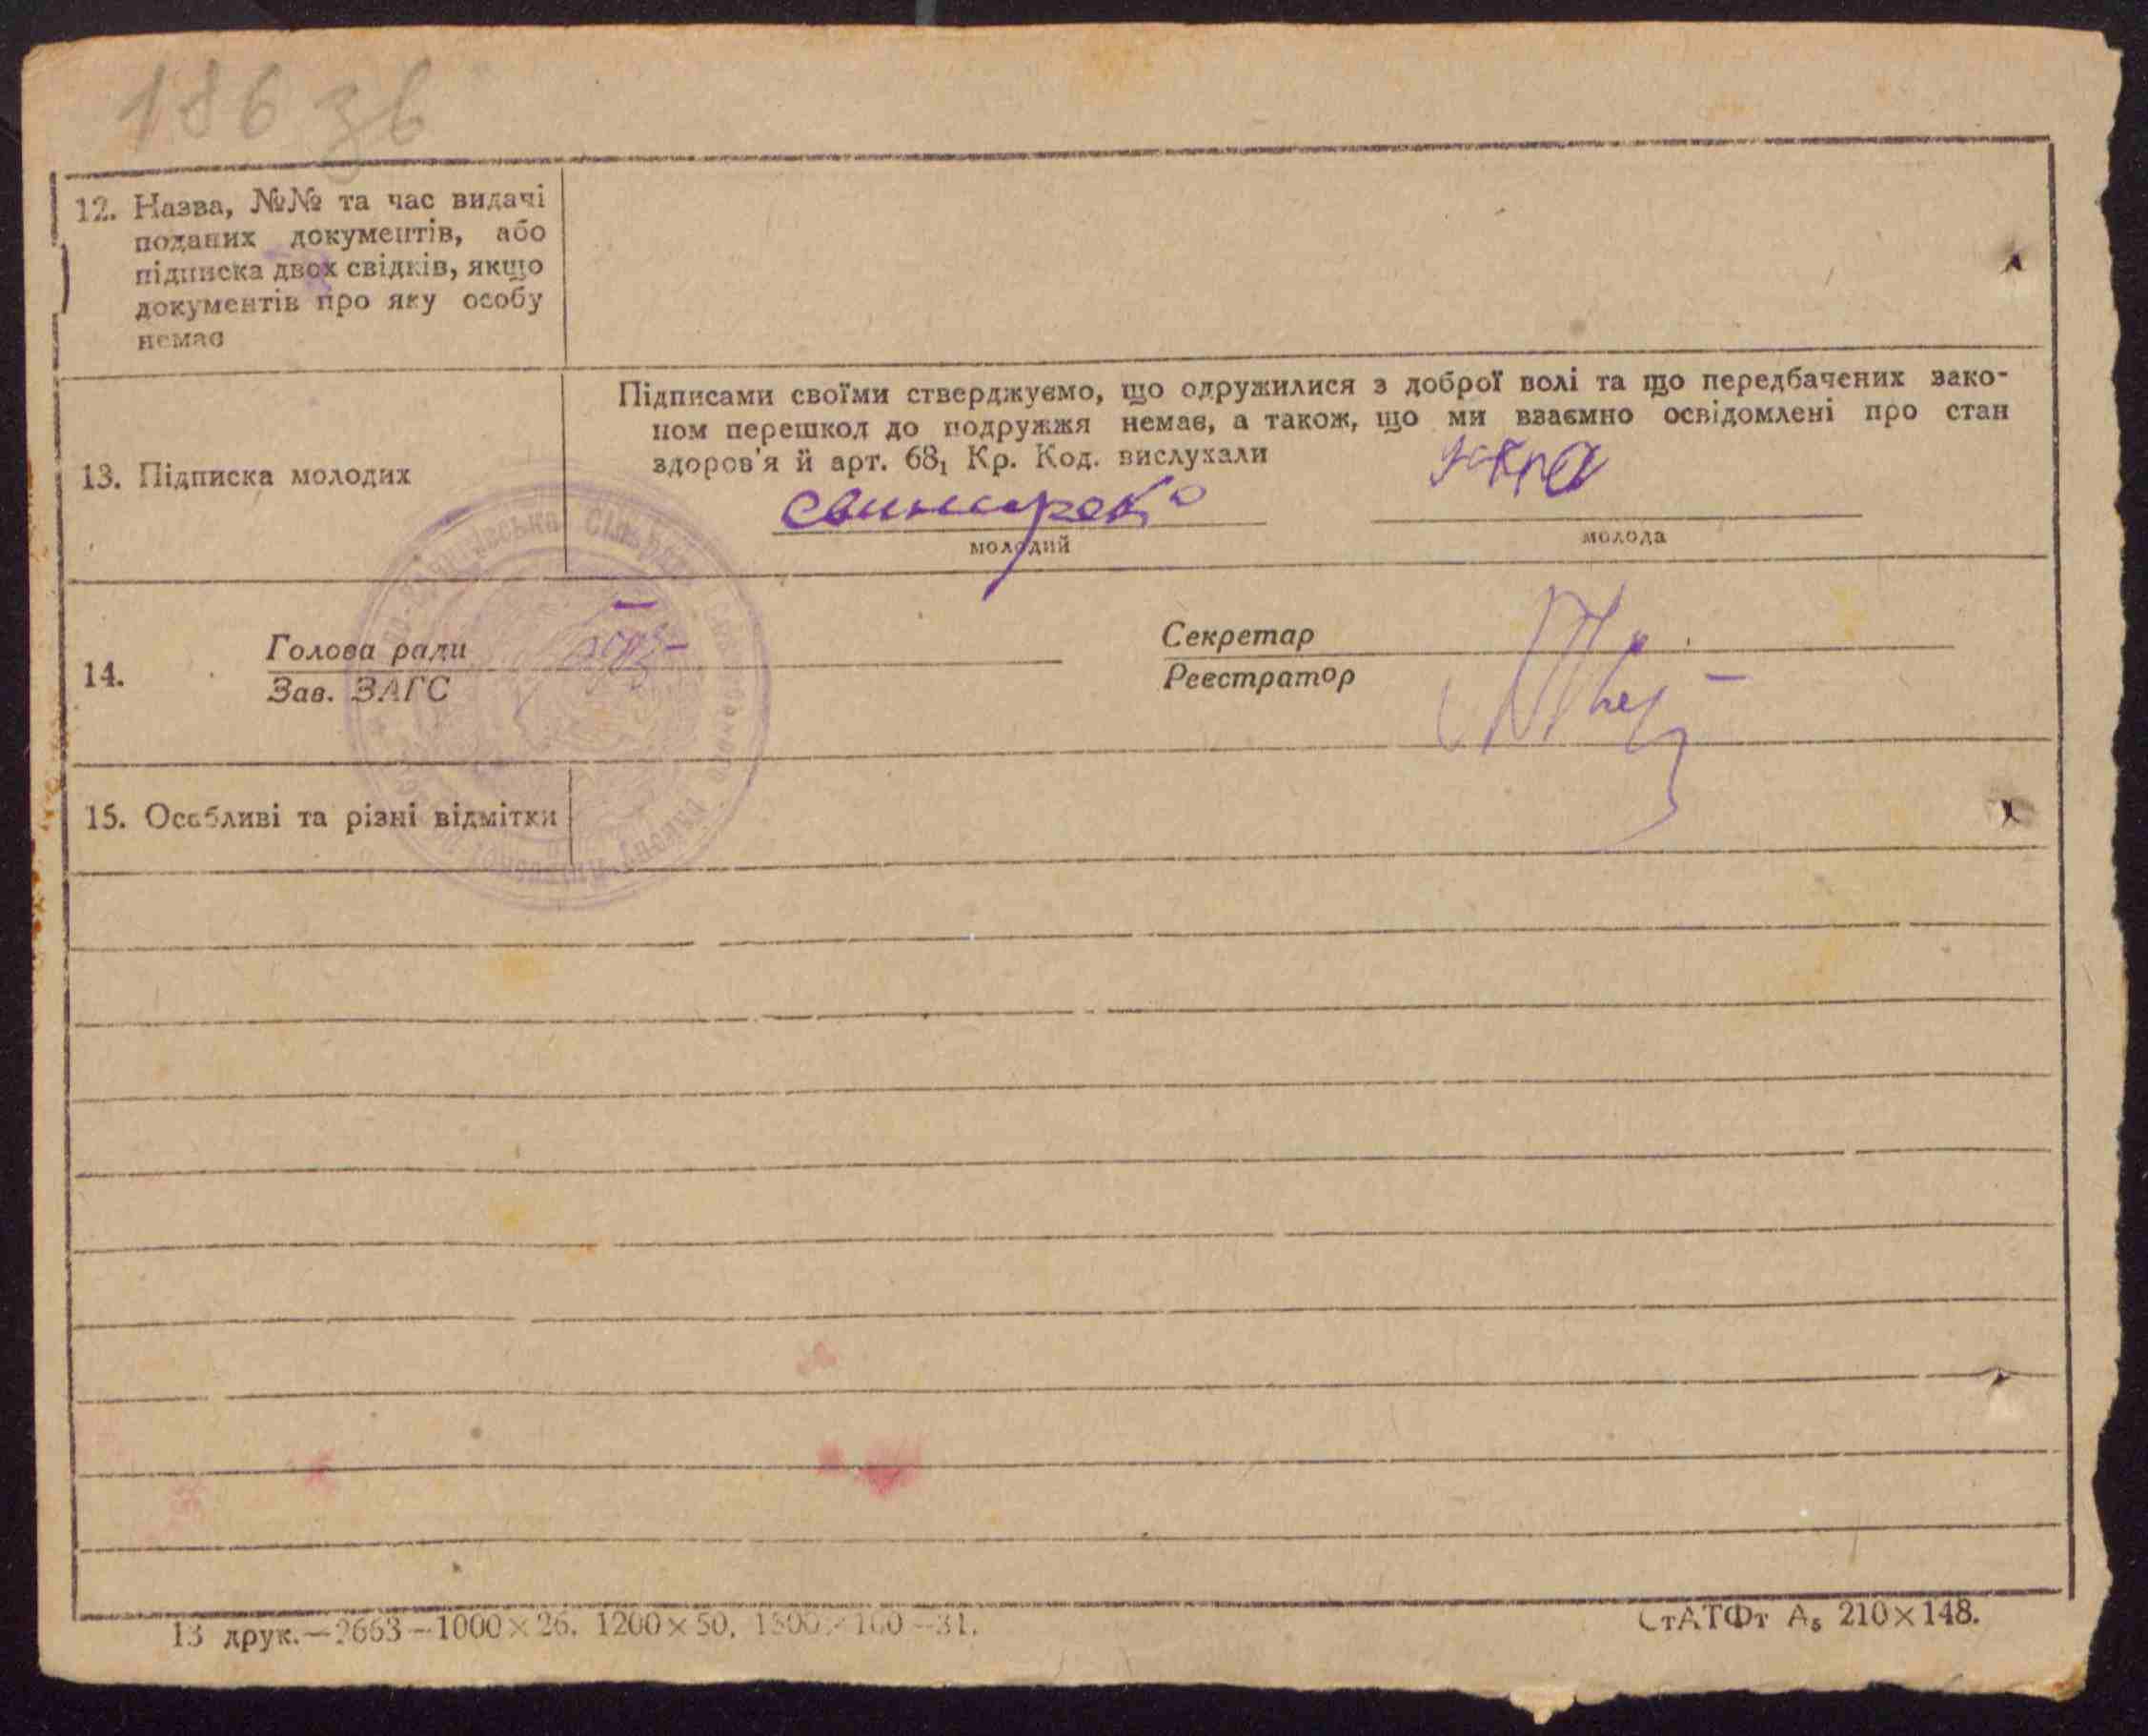 186 зв
12. Назва, №№ та час видачі
поданих документів, або
підписка двох свідків, якщо
документів про яку особу
немає
13. Підписка молодих
Підписами своїми стверджуємо, що одружилися з доброї волі та що передбачених зако-
ном перешкод до подружжя немає, а також, що ми взаємно освідомлені про стан
здоров'я й арт. 68₁ Кр. Код. вислухали
молодий
молода
14.
Голова ради
Зав. ЗАГС
Секретар
Реєстратор
15. Особливі та різні відмітки
13 друк.—2663—1000×26. 1200×50. 1500×100—31.
СтАТФт А₅ 210×148.